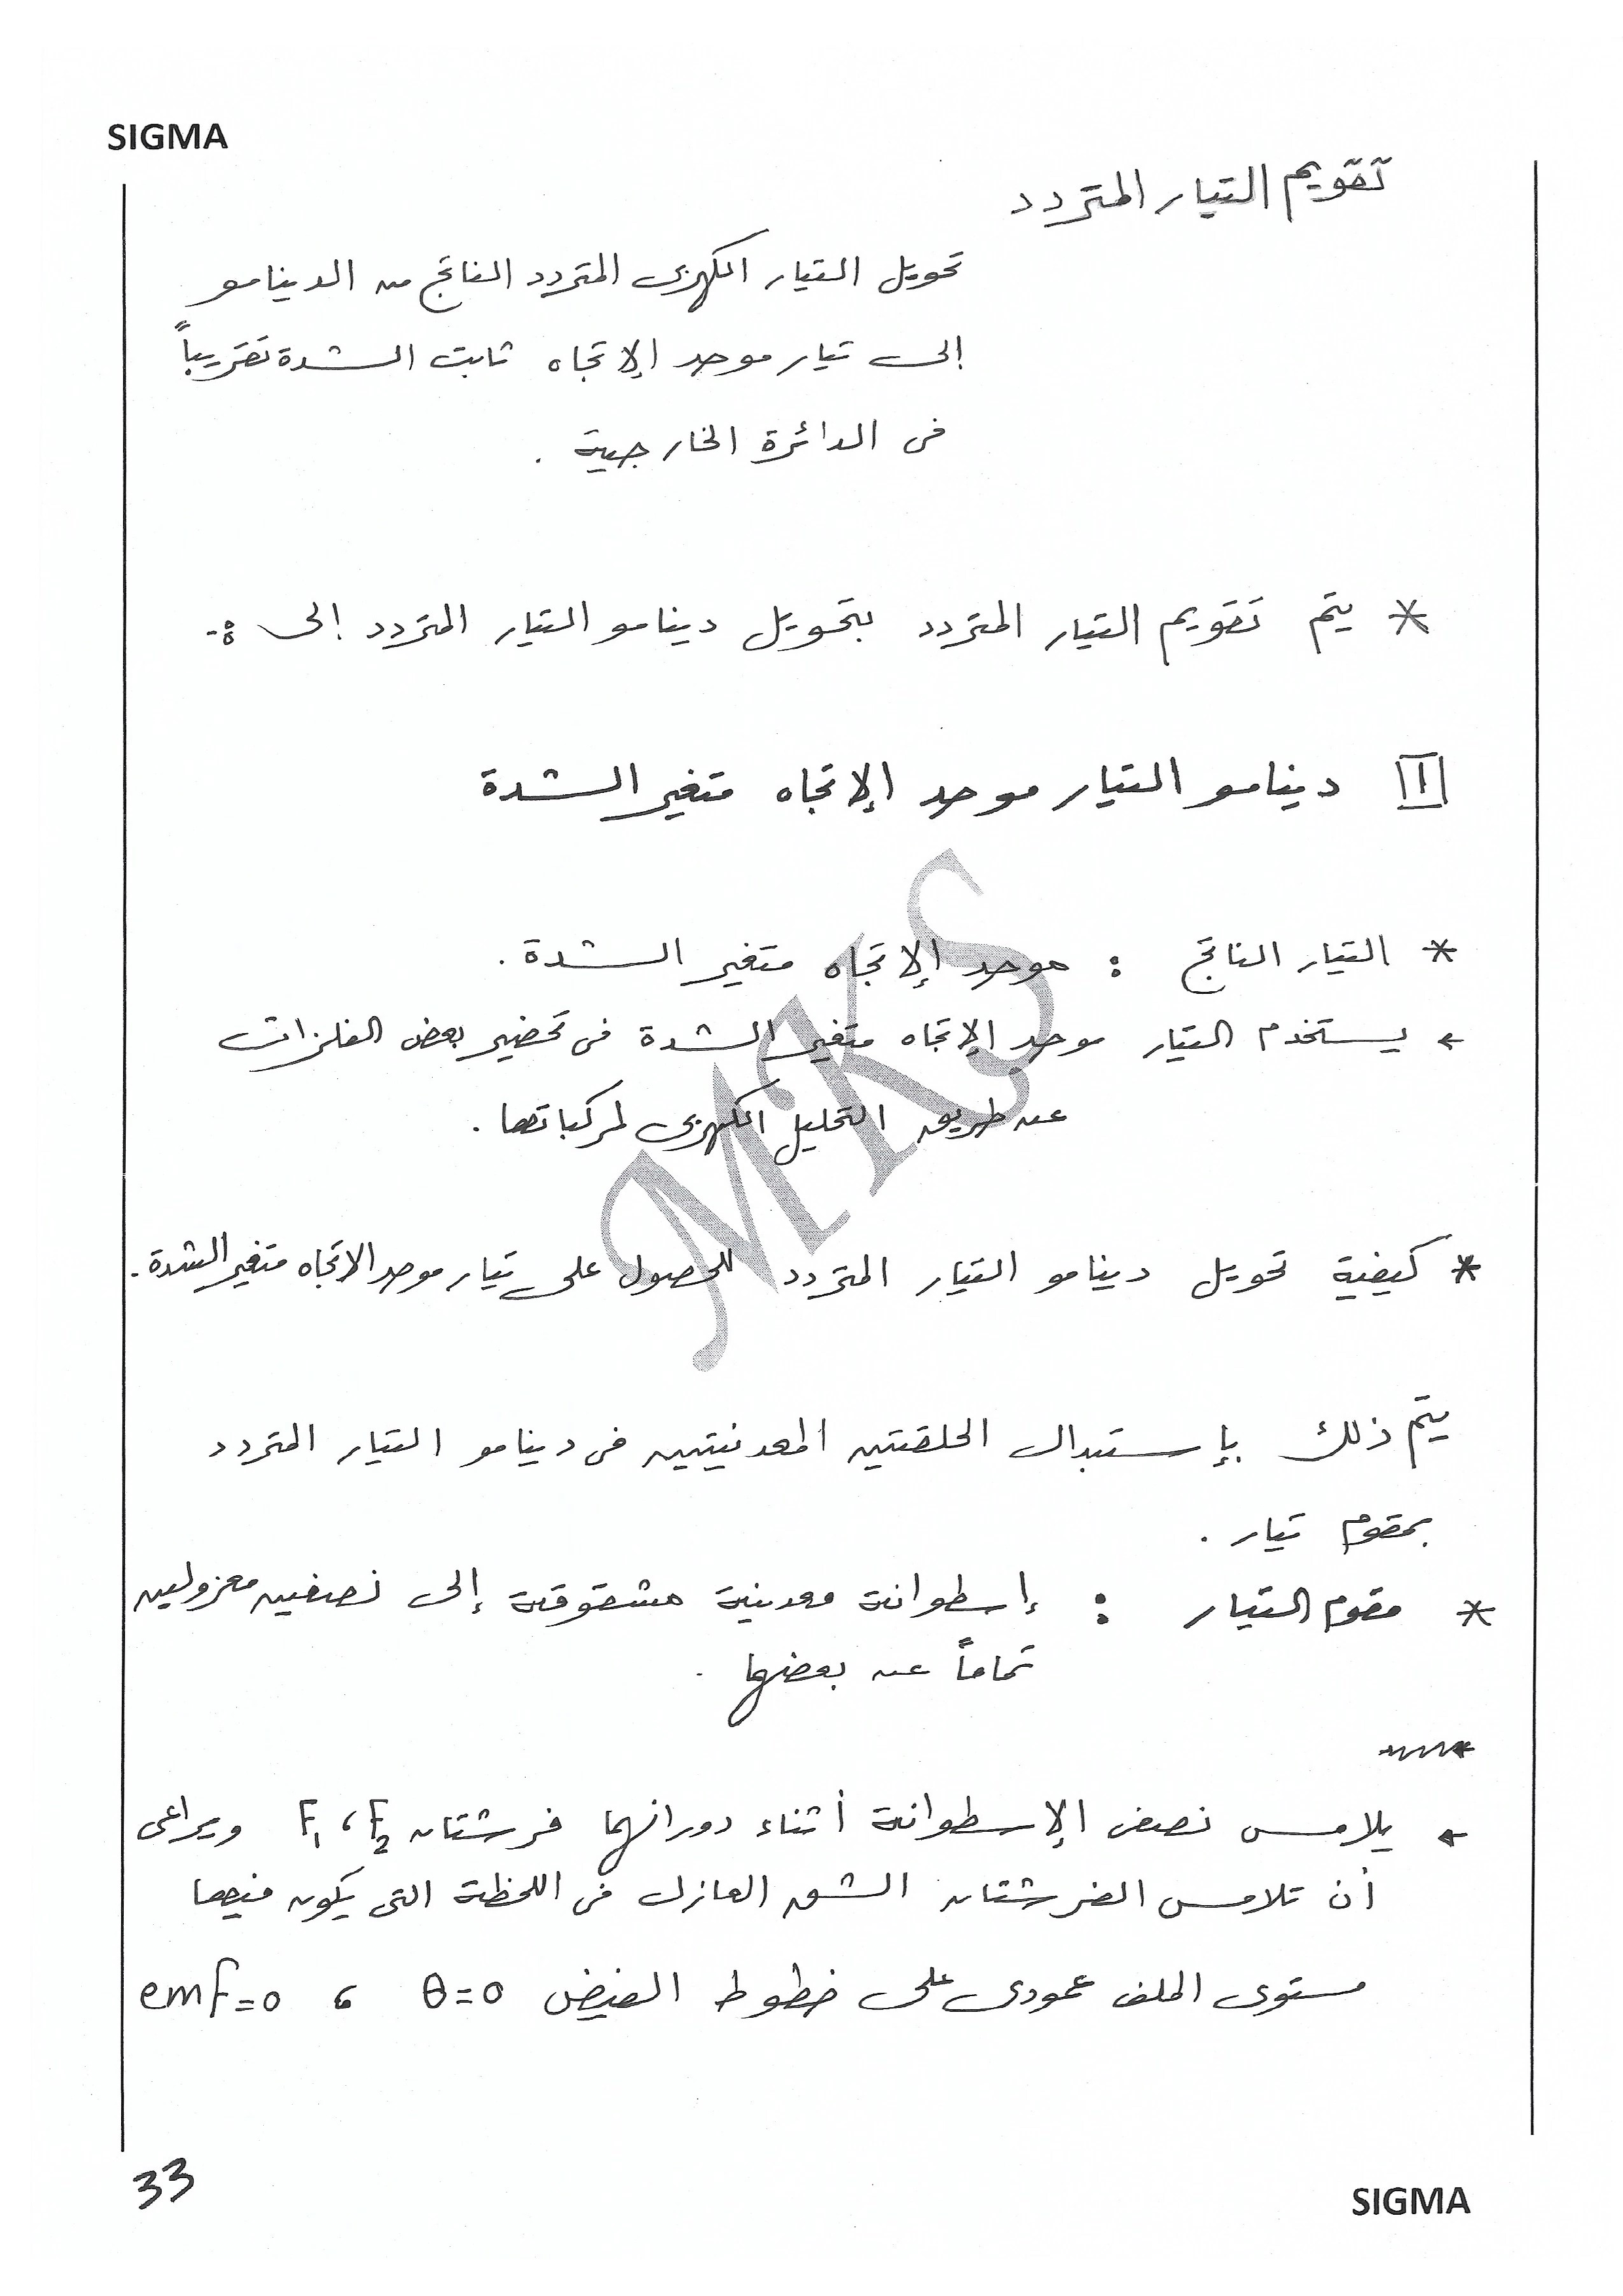 SIGMA
تقويم التيار المتردد
تحويل التيار الكهربى المتردد الناتج من الدينامو
إلى تيار موحد الإتجاه ثابت الشدة تقريباً
فى الدائرة الخارجية .
* يتم تقويم التيار المتردد بتحويل دينامو التيار المتردد إلى :-
1 دينامو التيار موحد الإتجاه متغير الشدة
* التيار الناتج : موحد الإتجاه متغير الشدة .
← يستخدم التيار موحد الإتجاه متغير الشدة فى تحضير بعض الفلزات
عن طريق التحليل الكهربى لمركباتها .
MKS
* كيفية تحويل دينامو التيار المتردد للحصول على تيار موحد الاتجاه متغير الشدة .
يتم ذلك بإستبدال الحلقتين المعدنيتين فى دينامو التيار المتردد
بمقوم تيار .
* مقوم التيار : إسطوانة معدنية مشقوقة إلى نصفين معزولين
تماماً عن بعضهما .
← يلامس نصفى الإسطوانة أثناء دورانهما فرشتان F₁ ، F₂ ويراعى
أن تلامس الفرشتان الشق العازل فى اللحظة التى يكون فيها
مستوى الملف عمودى على خطوط الفيض θ=0 ، emf=0
33
SIGMA